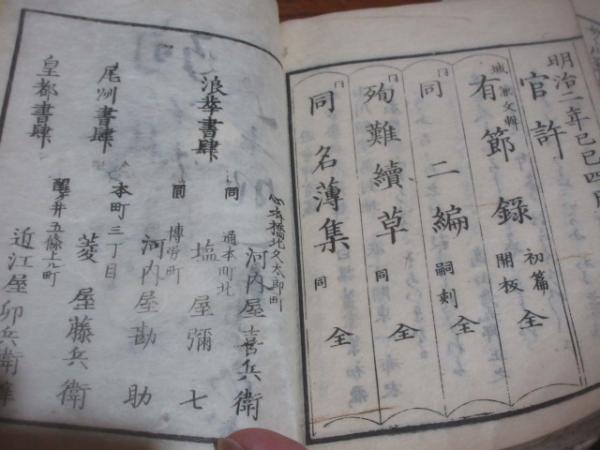 明治二年己巳四月
官許
城兼文輯
有節録 初篇 開板 全
同 同二編 嗣刻 全
同 殉難續草 同 全
同 同名簿集 同 全
浪華書肆
心斎橋北久太郎町
河内屋喜兵衛
同 通本町北
塩屋彌七
同 博労町
河内屋勘助
尾州書肆
本町三丁目
菱屋藤兵衛
皇都書肆
醒井五條上ル町
近江屋卯兵衛